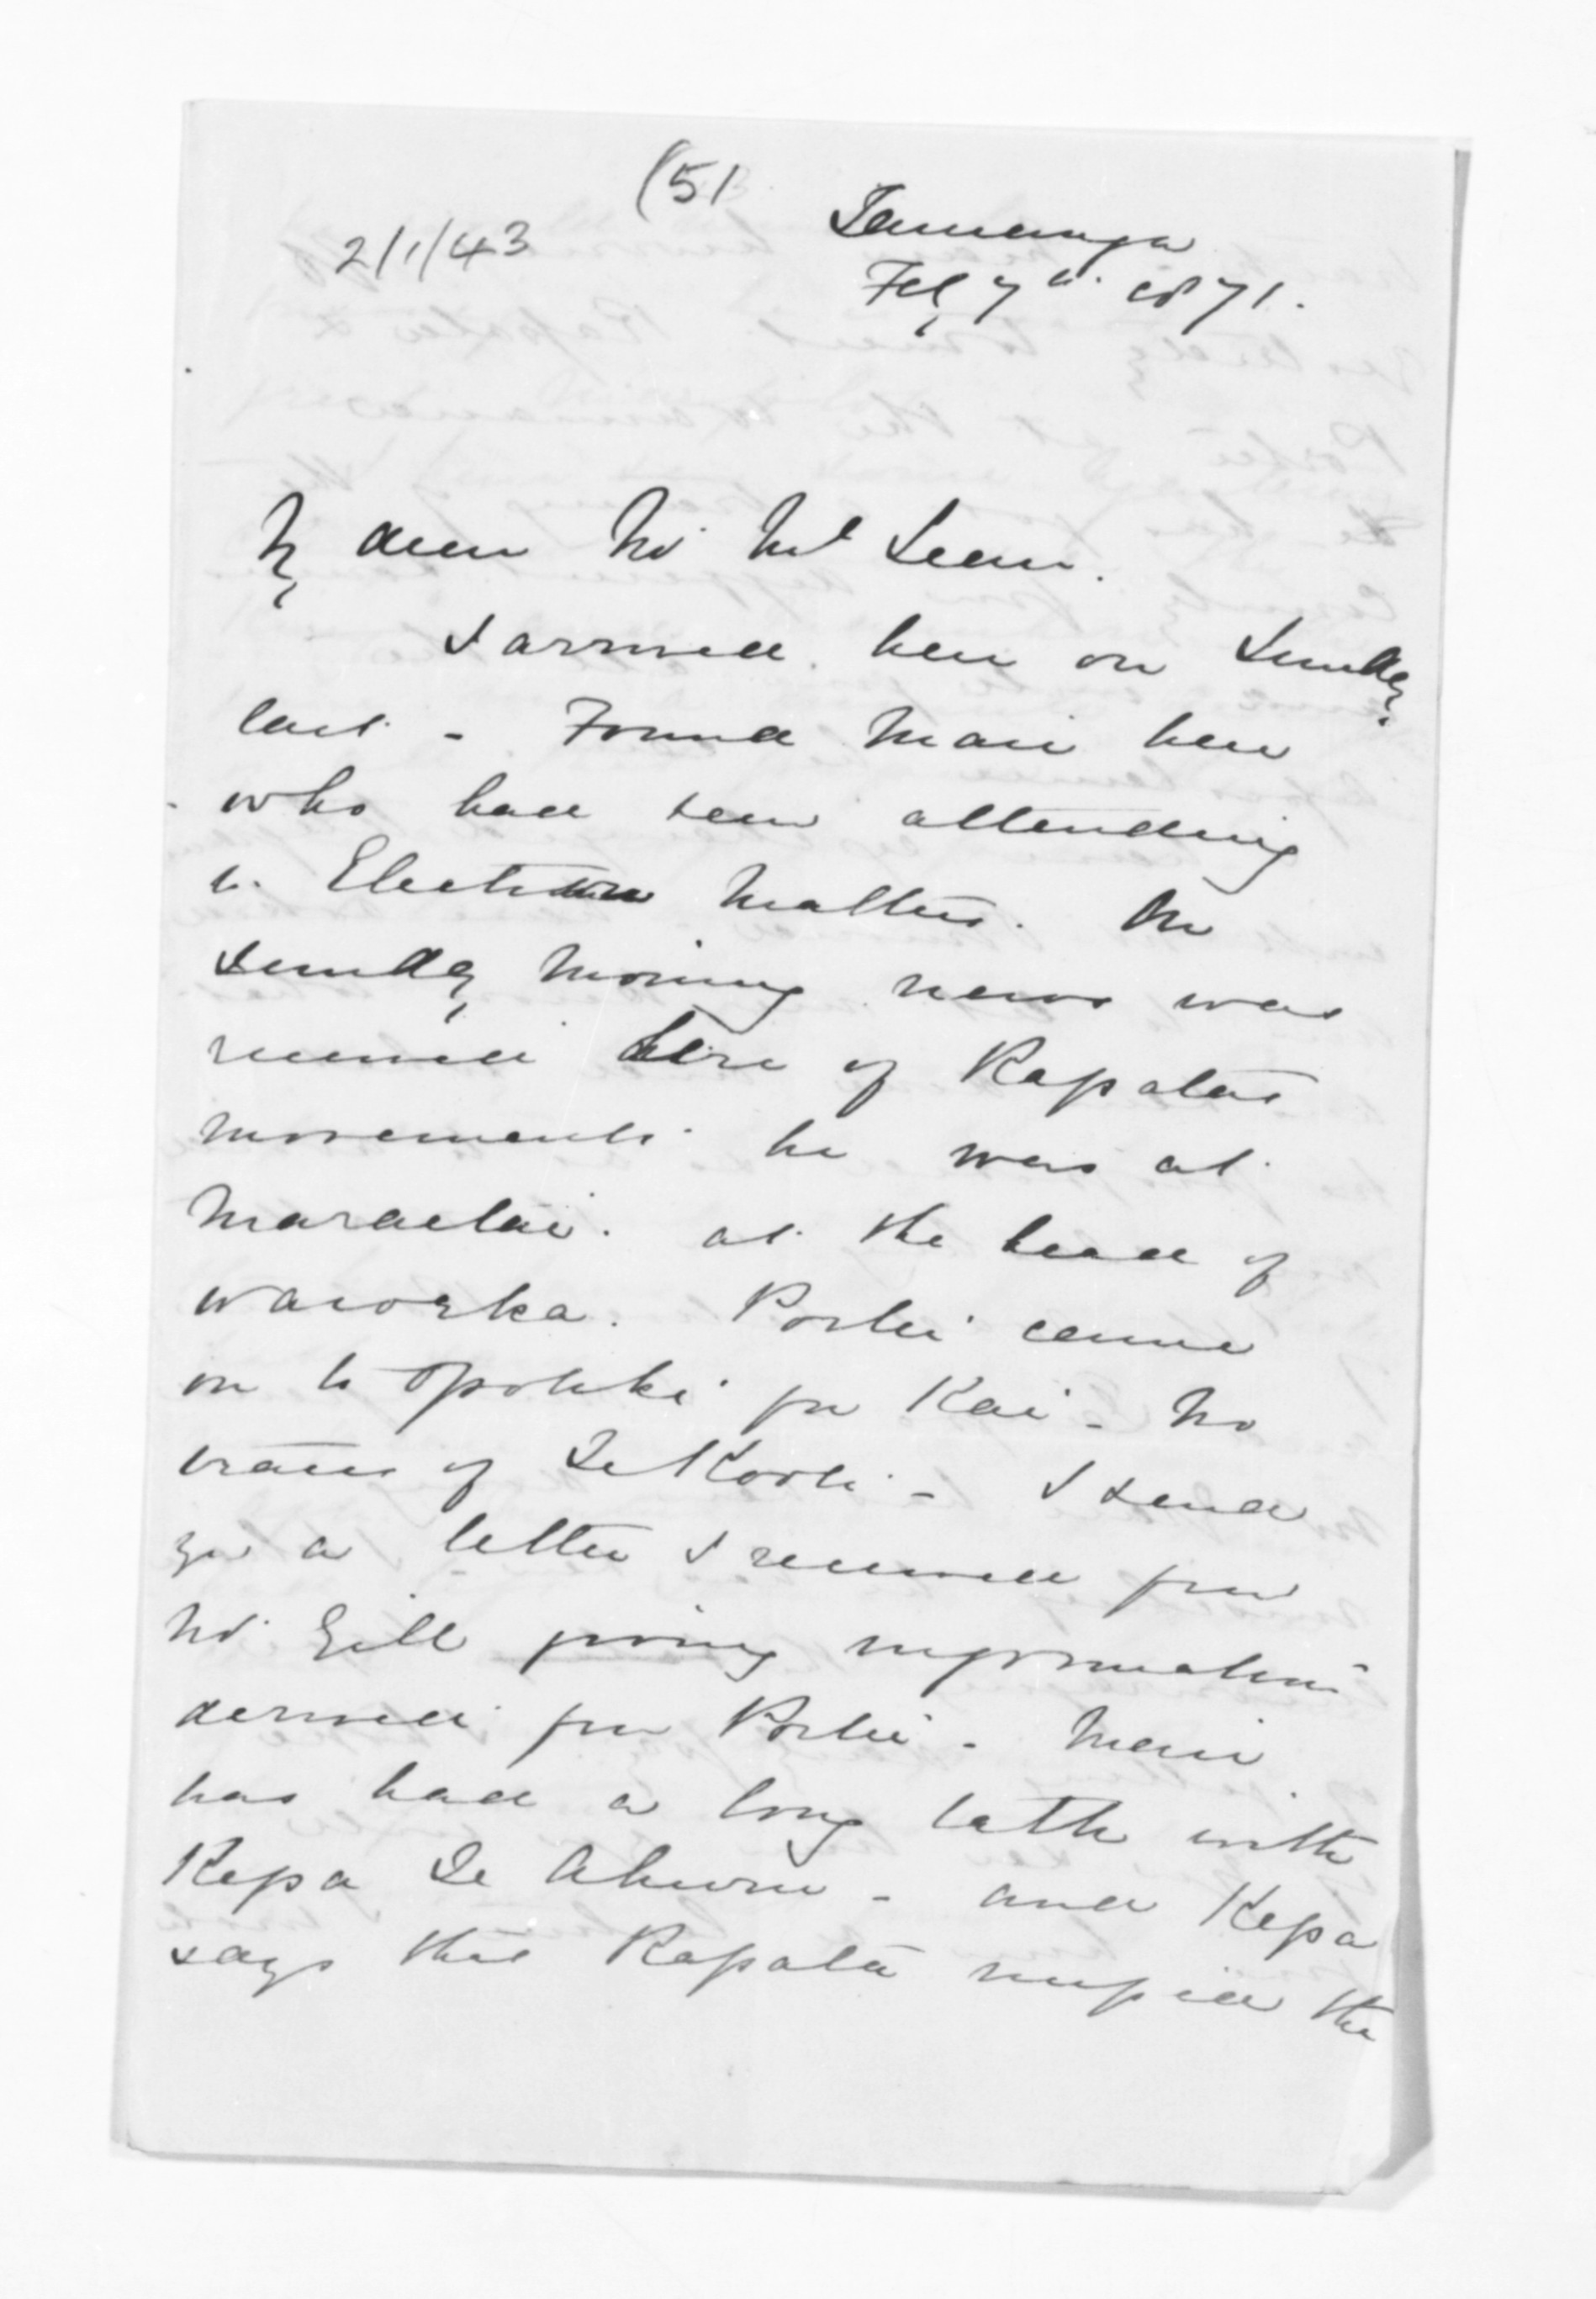 (51
2/1/43
Tauranga
Feby 7th. 1871.
My dear Mr McLean.
I arrived here on Sunday
last - Found Mair here
who had been attending
to Election Matters. On
Sunday Morning news was
received here of Rapatas
movements he was at
Maraetai. at the head of
Waioeka. Porter came
on to Opotiki for Kai - No
traces of Te Kooti - I send
you a letter I received from
Mr Gill giving information
derived from Porter - Mair
has had a long talk with
Kepa Te Ahuru - and Kepa
says that Rapata the